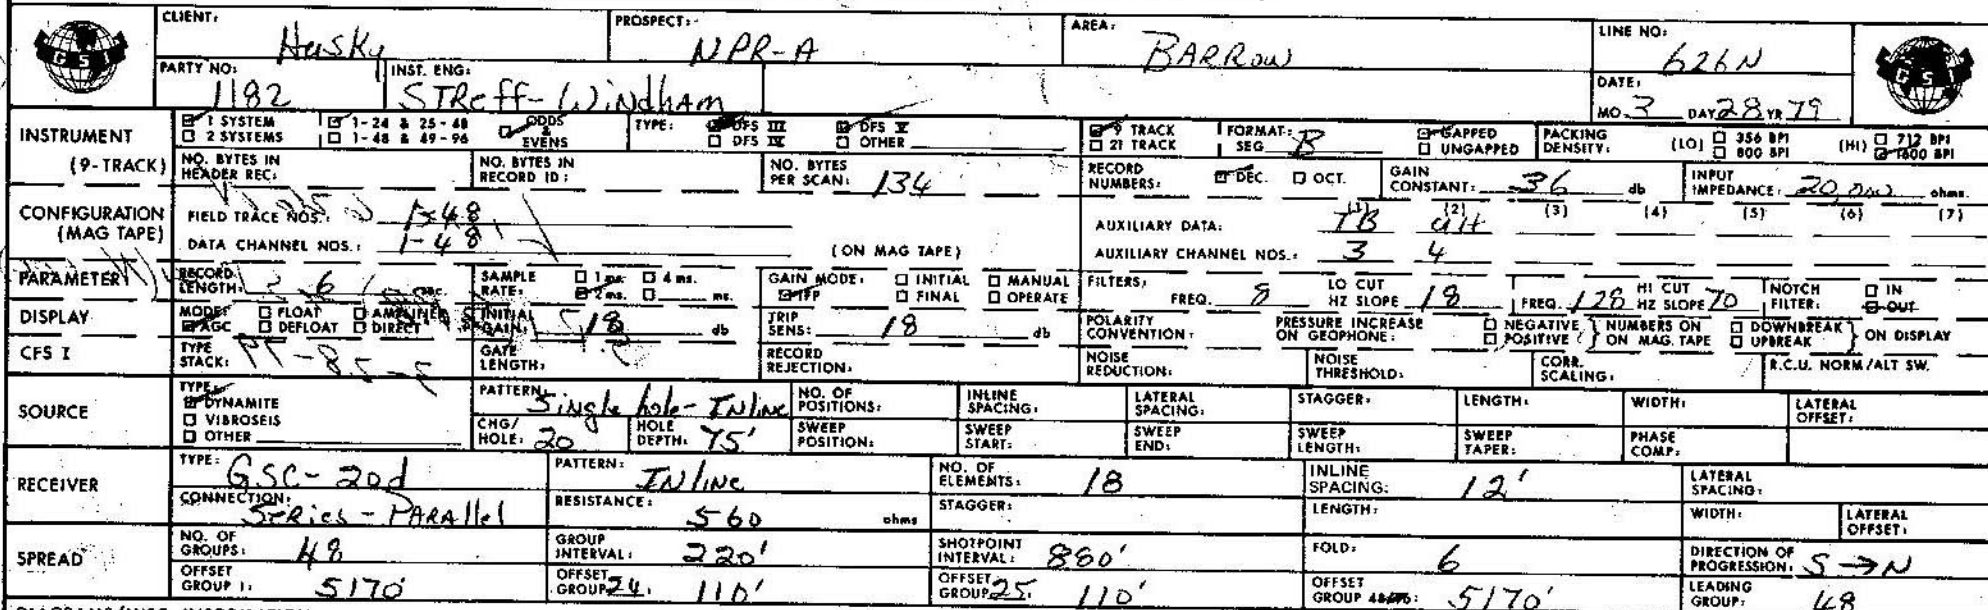 CLIENT: Husky PROSPECT: NPR-A AREA: BARROW LINE NO: 626N
GSI
PARTY NO: 1182 INST. ENG: STREFF-WINDHAM DATE: MO. 3 DAY 28 YR 79
GSI
INSTRUMENT (9-TRACK)
1 SYSTEM 1-24 & 25-48 ODDS & EVENS TYPE: DFS III DFS V 9 TRACK FORMAT: SEG B GAPPED PACKING DENSITY: (LO) 356 BPI (HI) 712 BPI
2 SYSTEMS 1-48 & 49-96 DFS IV OTHER 21 TRACK UNGAPPED 800 BPI 1600 BPI
NO. BYTES IN HEADER REC: NO. BYTES IN RECORD ID: NO. BYTES PER SCAN: 134 RECORD NUMBERS: DEC. OCT. GAIN CONSTANT: 36 db INPUT IMPEDANCE: 20,000 ohms.
CONFIGURATION (MAG TAPE)
FIELD TRACE NOS.: 1-48 AUXILIARY DATA: (1) TB (2) (3) (4) (5) (6) (7)
DATA CHANNEL NOS.: 1-48 (ON MAG TAPE) AUXILIARY CHANNEL NOS.: 3 4
PARAMETER RECORD LENGTH: 6 sec. SAMPLE RATE: 1 ms. 4 ms. 2 ms. ms. GAIN MODE: INITIAL MANUAL IFP FINAL OPERATE FILTERS: FREQ. 8 LO CUT HZ SLOPE 18 FREQ. 128 HI CUT HZ SLOPE 70 NOTCH FILTER: IN OUT
DISPLAY MODE: FLOAT AMPLINER AGC DEFLOAT DIRECT INITIAL GAIN: 18 db TRIP SENS: 18 db POLARITY CONVENTION: PRESSURE INCREASE ON GEOPHONE: NEGATIVE POSITIVE NUMBERS ON ON MAG. TAPE DOWNBREAK UPBREAK ON DISPLAY
CFS I TYPE STACK: GATE LENGTH: RECORD REJECTION: NOISE REDUCTION: NOISE THRESHOLD: CORR. SCALING: R.C.U. NORM/ALT SW.
SOURCE TYPE: DYNAMITE VIBROSEIS OTHER
PATTERN: Single hole-Inline NO. OF POSITIONS: INLINE SPACING: LATERAL SPACING: STAGGER: LENGTH: WIDTH: LATERAL OFFSET:
CHG/HOLE: 20 HOLE DEPTH: 75' SWEEP POSITION: SWEEP START: SWEEP END: SWEEP LENGTH: SWEEP TAPER: PHASE COMP:
RECEIVER TYPE: GSC-20d PATTERN: INline NO. OF ELEMENTS: 18 INLINE SPACING: 12' LATERAL SPACING:
CONNECTION: SERies-PARAllel RESISTANCE: 560 ohms STAGGER: LENGTH: WIDTH: LATERAL OFFSET:
SPREAD NO. OF GROUPS: 48 GROUP INTERVAL: 220' SHOTPOINT INTERVAL: 880' FOLD: 6 DIRECTION OF PROGRESSION: S→N
OFFSET GROUP 1: 5170' OFFSET GROUP 24: 110' OFFSET GROUP 25: 110' OFFSET GROUP 48: 5170' LEADING GROUP: 48